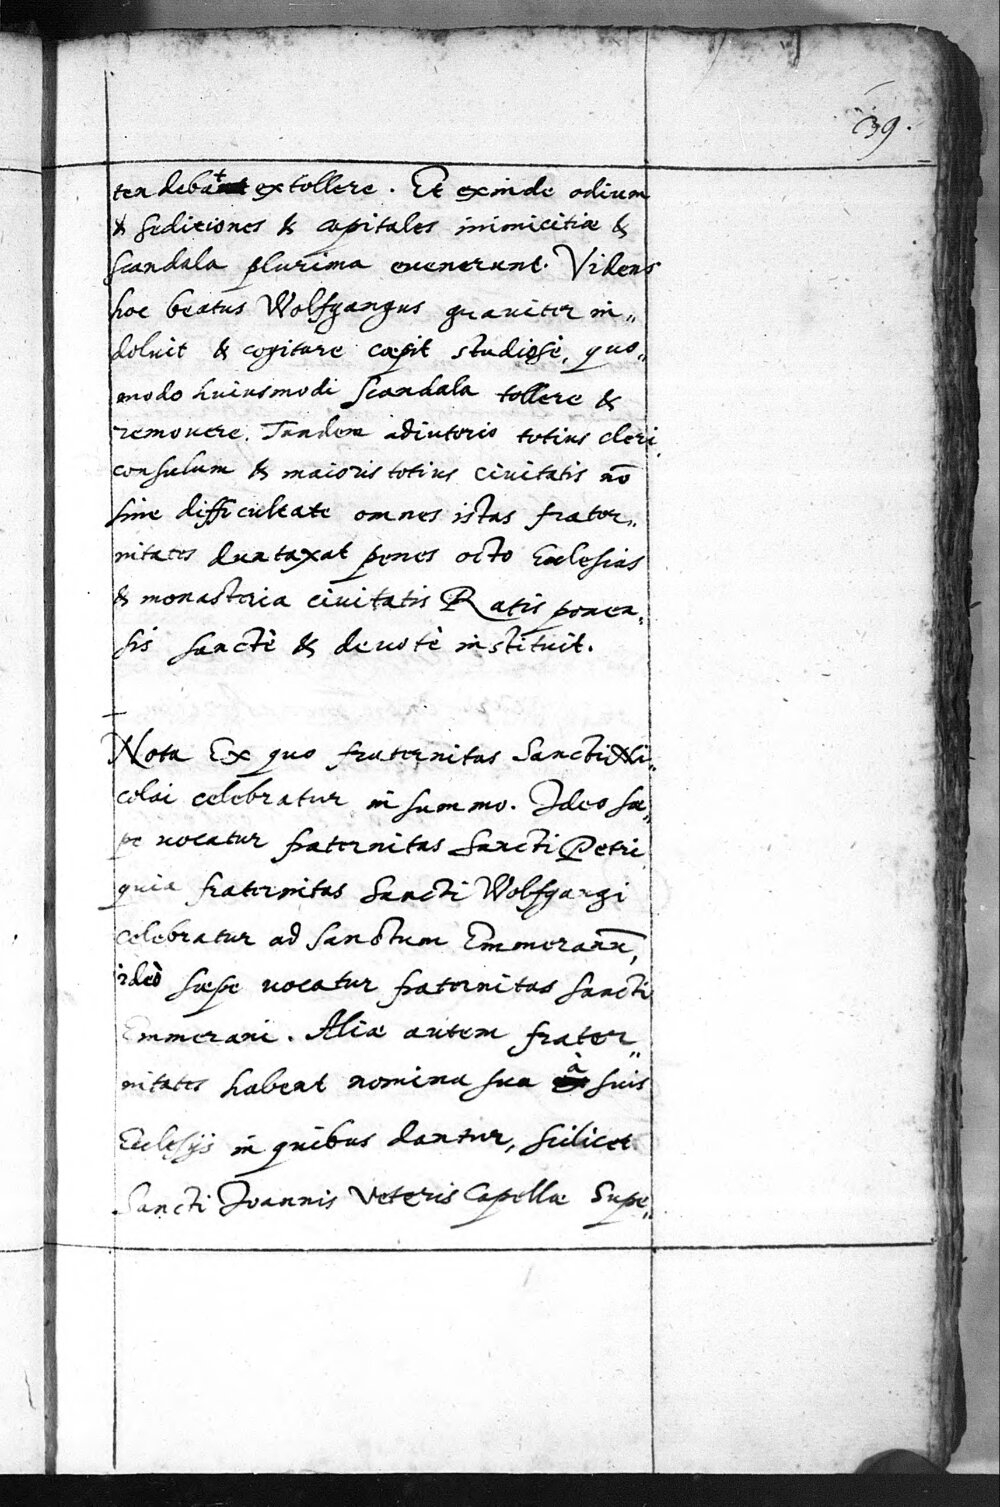 39.
tendeba^t extollere. Et exinde odium
& sediciones & capitales inimicitiæ &
scandala plurima euenerunt. Videns
hoc beatus Wolfgangus grauiter in„
doluit & cogitare cœpit studiosè, quo„
modo huiusmodi scandala tollere &
remouere. Tandem adiutorio totius cleri,
consulum & maioris totius ciuitatis nō
sine difficultate omnes istas frater„
nitates duntaxat penes octo Ecclesias
& monasteria ciuitatis Ratisponen„
sis sanctè & deuotè instituit.
Nota Ex quo fraternitas Sancti Ni„
colai celebratur in summo. Ideo sæ„
pe uocatur fraternitas Sancti Petri,
quia fraternitas Sancti Wolfgangi
celebratur ad Sanctum Emmeranū,
ideò sæpe uocatur fraternitas Sancti
Emmerani. Aliæ autem frater„
nitates habent nomina sua à suis
Ecclesijs in quibus dantur, scilicet
Sancti Joannis Veteris Capellæ Supe„